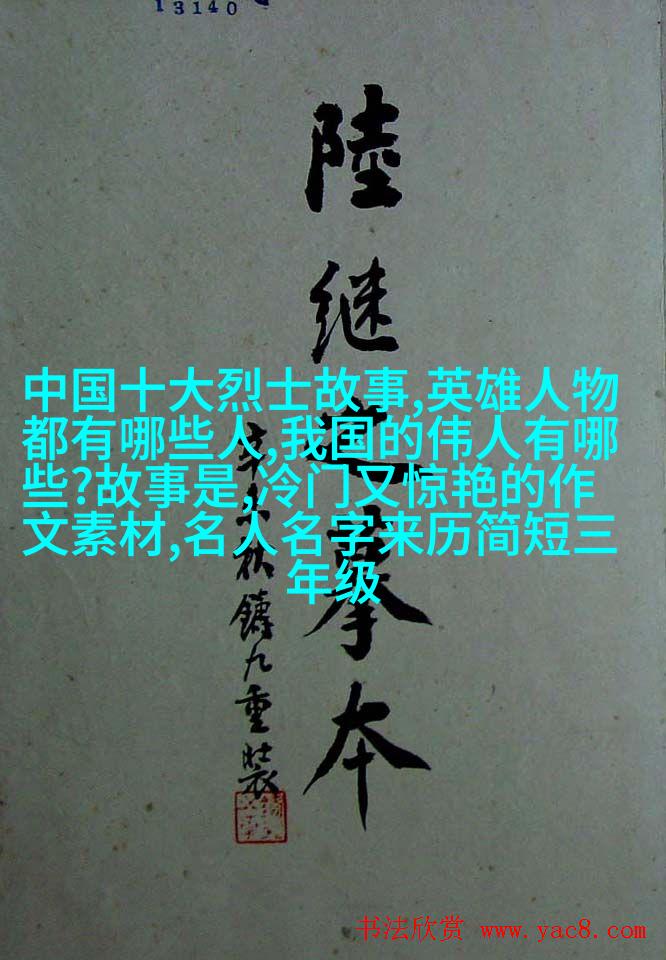 13140
陸继之摹本
辛未秋鑄九重裝
中国十大烈士故事,英雄人物
都有哪些人,我国的伟人有哪
些?故事是,冷门又惊艳的作
文素材,名人名字来历简短三
年级
书法欣赏 www.yac8.com